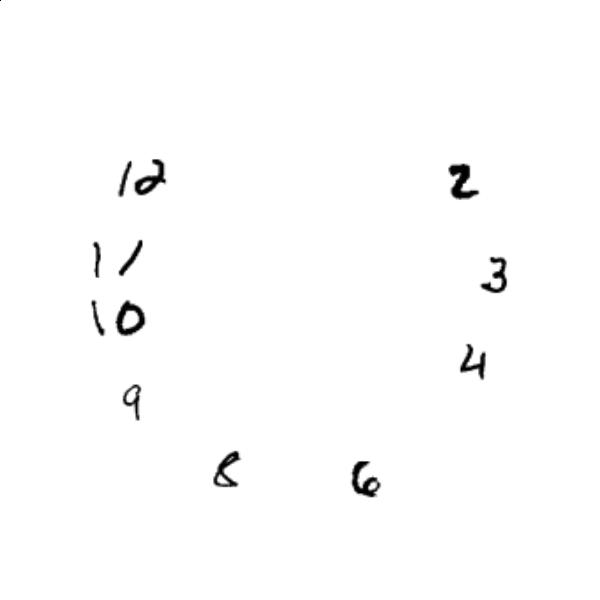 12 2
11 3
10 4
9
8 6